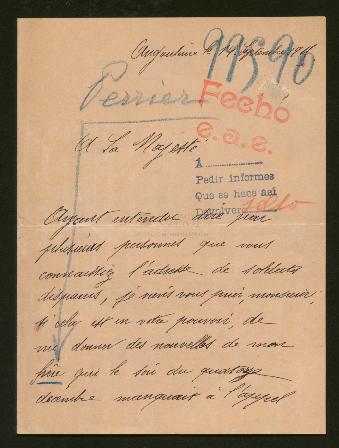 Angoulême le 14 Septembre
99590
Perrier
Fecho
e.a.e.
A Sa Majesté
1
Pedir informes
Que se hace asi
Devolver
Ayant entendu dire par
plusieurs personnes que vous
connaissiez l'adresse de soldats
disparus, je viens vous prier monsieur,
si cela est en votre pouvoir, de
me donner des nouvelles de mon
frère que le soir du quatorze
decembre manquait à l'appel